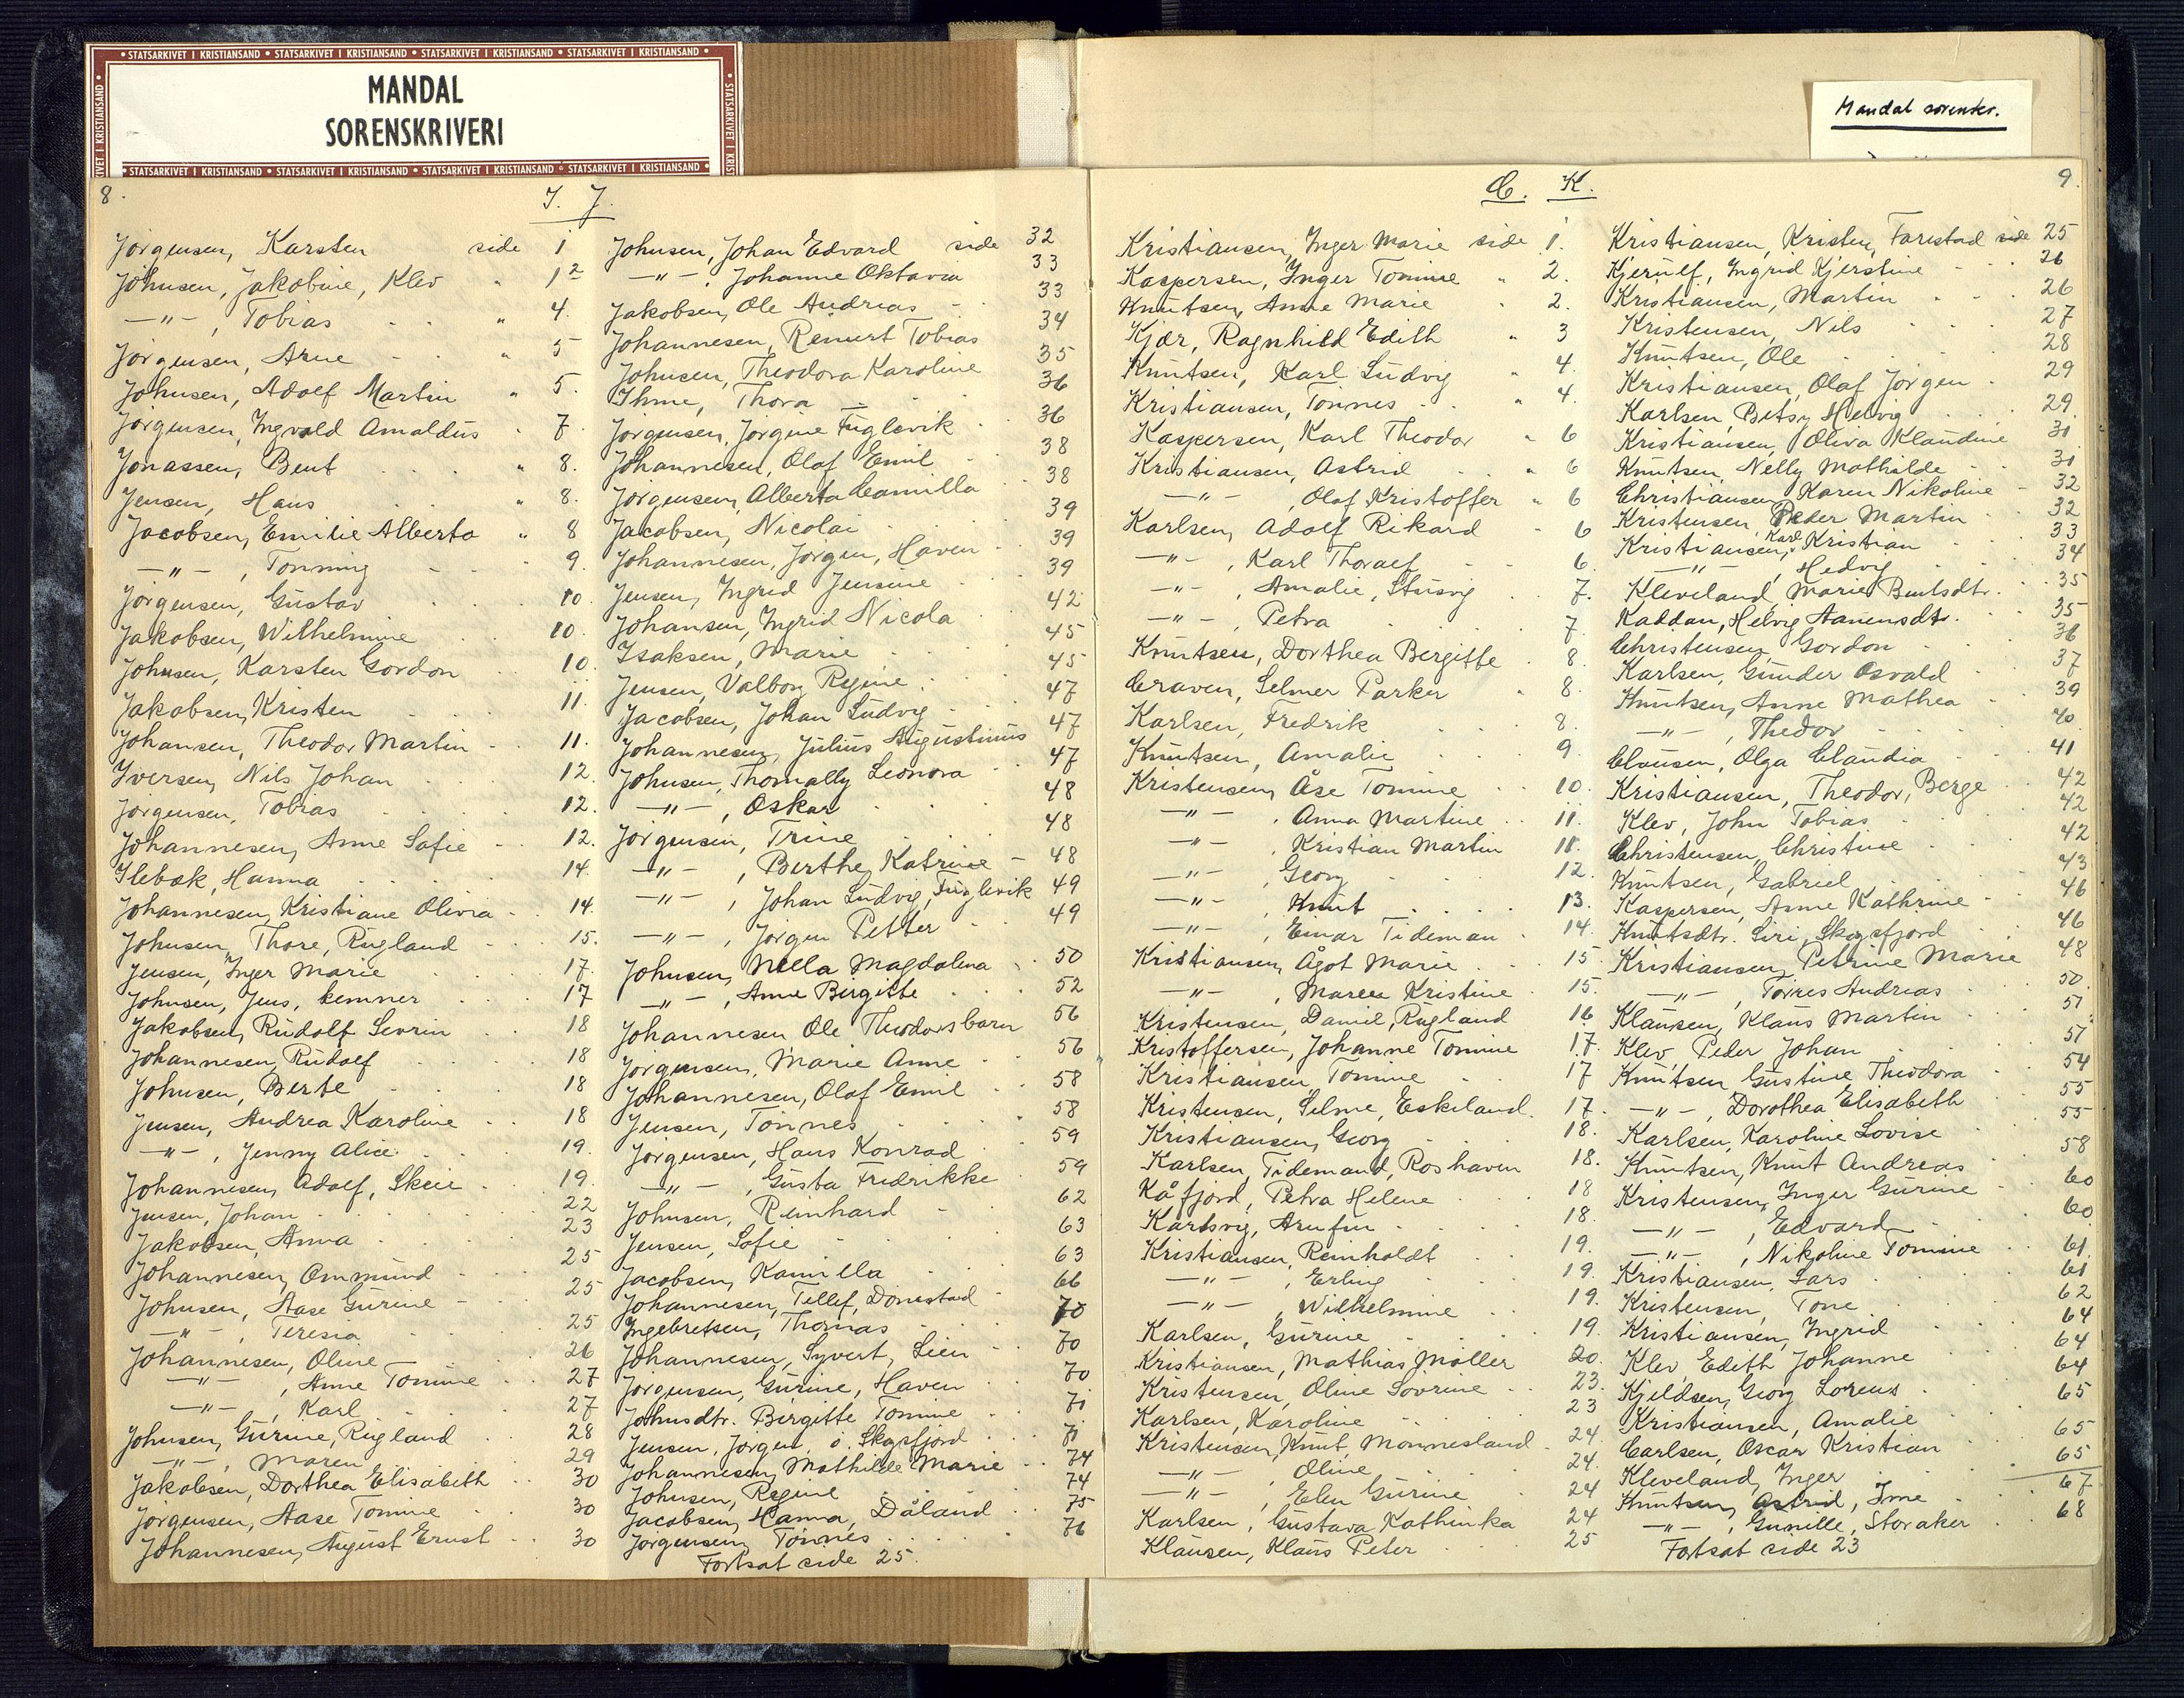 STATSARKIVET I KRISTIANSAND • STATSARKIVET I KRISTIANSAND • STATSARKIVET I KRISTIANSAND • STATSARKIVET I KRISTIANSAND
MANDAL
SORENSKRIVERI
STATSARKIVET I KRISTIANSAND • STATSARKIVET I KRISTIANSAND • STATSARKIVET I KRISTIANSAND • STATSARKIVET I KRISTIANSAND
Mandal sorenskr.
8.
I. J.
Jörgensen, Karsten side 1
Johnsen, Jakobine, Klev " 12
—"— , Tobias " 4.
Jörgensen, Arne " 5
Johnsen, Adolf Martin " 5.
Jörgensen, Ingvald Arnoldus " 7
Jonassen, Bent " 8.
Jensen, Hans " 8.
Jacobsen, Emilie Alberta " 8
—"— , Tonning 9.
Jörgensen, Gustav 10.
Jakobsen, Wilhelmine 10.
Johnsen, Karsten Gordon 10.
Jakobsen, Kristen 11.
Johansen, Theodor Martin 11.
Iversen, Nils Johan 12.
Jörgensen, Tobias 12.
Johannesen, Anne Sofie 12.
Ilebæk, Hanna 14.
Johannesen, Kristiane Olivia 14.
Johnsen, Thore, Rugland 15.
Jensen, Inger Marie 17.
Johnsen, Jens, kemner 17
Jakobsen, Rudolf Severin 18
Johannesen, Rudolf 18
Johnsen, Berte 18
Jensen, Andrea Karoline 18
—"— , Jenny Alice 19.
Johannesen, Adolf, Skeie 19.
Jensen, Johan 22
Jakobsen, Anna 23
Johannesen, Ommund 25
Johnsen, Aase Gurine 25
—"— , Teresia 25
Johannesen, Oline 26
—"— , Anne Tomine 27
—"— , Karl 27
Johnsen, Gurine, Rugland 28
—"— , Maren 29
Jakobsen, Dorthea Elisabeth 30
Jörgensen, Aase Tomine 30
Johannesen, August Ernst 30
Johnsen, Johan Edvard side 32
—"— , Johanne Oktavia 33
Jakobsen, Ole Andreas 33
Johannesen, Reinert Tobias 34
Johnsen, Theodora Karoline 35
Ihme, Thora 36
Jörgensen, Jorgine Fuglevik 36
Johannesen, Olaf Emil 38
Jörgensen, Alberta Camilla 38
Jacobsen, Nicolai 39
Johannesen, Jörgen, Haven 39
Jensen, Ingrid Jensine 39
Johansen, Ingrid Nicola 42
Isaksen, Marie 45
Jensen, Valborg Regine 45
Jacobsen, Johan Ludvig 47
Johannesen, Julius Augustinus 47
Johnsen, Thomally Leonora 47
—"— , Oskar 48
Jörgensen, Trine 48
—"— , Berthe Katrine 48
—"— , Johan Ludvig, Fuglevik 49
—"— , Jörgen Petter 49
Johnsen, Nella Magdalena 50
—"— , Anne Birgitte 52
Johannesen, Ole Theodorsbarn 56
Jörgensen, Marie Anne 56
Johannesen, Olaf Emil 58
Jensen, Tönnes 58
Jörgensen, Hans Konrad 59
—"— , Gusta Fredrikke 59
Johnsen, Reinhard 62
Jensen, Sofie 63
Jacobsen, Kamilla 63
Johannesen, Tellef, Dönestad 66
Ingebretsen, Thomas 70
Johannesen, Syvert, Lien 70
Jörgensen, Gurine, Haven 70
Johnsdtr. Birgitte Tomine 71
Jensen, Jörgen, ö. Skogsfjord 71
Johannesen, Mathilde Marie 74
Johnsen, Regine 74
Jacobsen, Hanna, Dåland 75
Jörgensen, Tönnes 76
Fortsat side 25.
9.
C. K.
Kristiansen, Inger Marie side 1.
Kaspersen, Inger Tomine " 2.
Knutsen, Anne Marie " 2.
Kjær, Ragnhild Edith " 3
Knutsen, Karl Ludvig " 4.
Kristiansen, Tönnes " 4.
Kaspersen, Karl Theodor " 6
Kristiansen, Astrid " 6
—"— , Olaf Kristoffer " 6
Karlsen, Adolf Rikard 6
—"— , Karl Thoralf 6.
—"— , Amalie, Stusvig 7.
—"— , Petra 7
Knutsen, Dorthea Bergitte 8.
Craven, Selmer Parker " 8.
Karlsen, Fredrik 8.
Knutsen, Amalie 9.
Kristensen, Åse Tomine 10.
—"— , Anna Martine 11.
—"— , Kristian Martin 11.
—"— , Georg 12.
—"— , Knut 13.
—"— , Einar Tideman 14.
Kristiansen, Ågot Marie 15.
—"— , Maren Kristine 15.
Kristensen, Daniel, Rugland 16
Kristoffersen, Johanne Tomine 17.
Kristiansen, Tomine 17
Kristensen, Selme, Eskeland 17.
Kristiansen, Georg 18.
Karlsen, Tidemand, Roshaven 18.
Kåfjord, Petra Helene 18
Karlsvig, Arnfin 18.
Kristiansen, Reinholdt 19.
—"— , Erling 19.
—"— , Wilhelmine 19.
Karlsen, Gurine 19.
Kristiansen, Mathias Möller 20.
Kristensen, Oline Lovrine 23.
Karlsen, Karoline 23
Kristensen, Knut, Monnesland 24.
—"— , Oline 24.
—"— , Elen Gurine 24
Karlsen, Gustava Kathinka 24
Klausen, Klaus Peter 25
Kristiansen, Kristen, Farestad side 25
Kjerulf, Ingrid Kjerstine 26
Kristiansen, Martin 26
Kristensen, Nils 27
Knutsen, Ole 28
Kristiansen, Olaf Jörgen 29
Karlsen, Betsy Helvig 29.
Kristiansen, Oliva Klaudine 31
Knutsen, Nelly Mathilde 31
Christiansen, Karen Nikoline 32
Kristensen, Peder Martin 32
Kristiansen, Karl Kristian 33
—"— , Hedvig 34
Kleveland, Marie Bentsdtr. 35
Kaddan, Helvig Aanensdtr. 35
Christensen, Gordon 36
Karlsen, Gunder Osvald 37
Knutsen, Anne Mathea 39
—"— , Thedor 40
Clausen, Olga Claudia 41
Kristiansen, Theodor, Berge 42
Klev, John Tobias 42
Christensen, Christine 42
Knutsen, Gabriel 43
Kaspersen, Anne Kathrine 46
Knutsdtr. Siri, Skogsfjord 46
Kristiansen, Petrine Marie 48
—"— , Torres Andreas 50.
Klausen, Klaus Martin 51
Klev, Peder Johan 51
Knutsen, Gustine Theodora 54
—"— , Dorothea Elisabeth 55
Karlsen, Karoline Lovise 55
Knutsen, Knut Andreas 58
Kristensen, Inger Gurine 60
—"— , Edvard 60
—"— , Nikoline Tomine 61.
Kristiansen, Lars 61
Kristensen, Tone 62
Kristiansen, Ingrid 64
Klev, Edith Johanne 64
Kjeldsen, Georg Lorens 64
Kristiansen, Amalie 65
Carlsen, Oscar Kristian 65
Kleveland, Inger 65
Knutsen, Astrid, Ime 67
—"— , Gunille, Storaker 68
Fortsat side 23